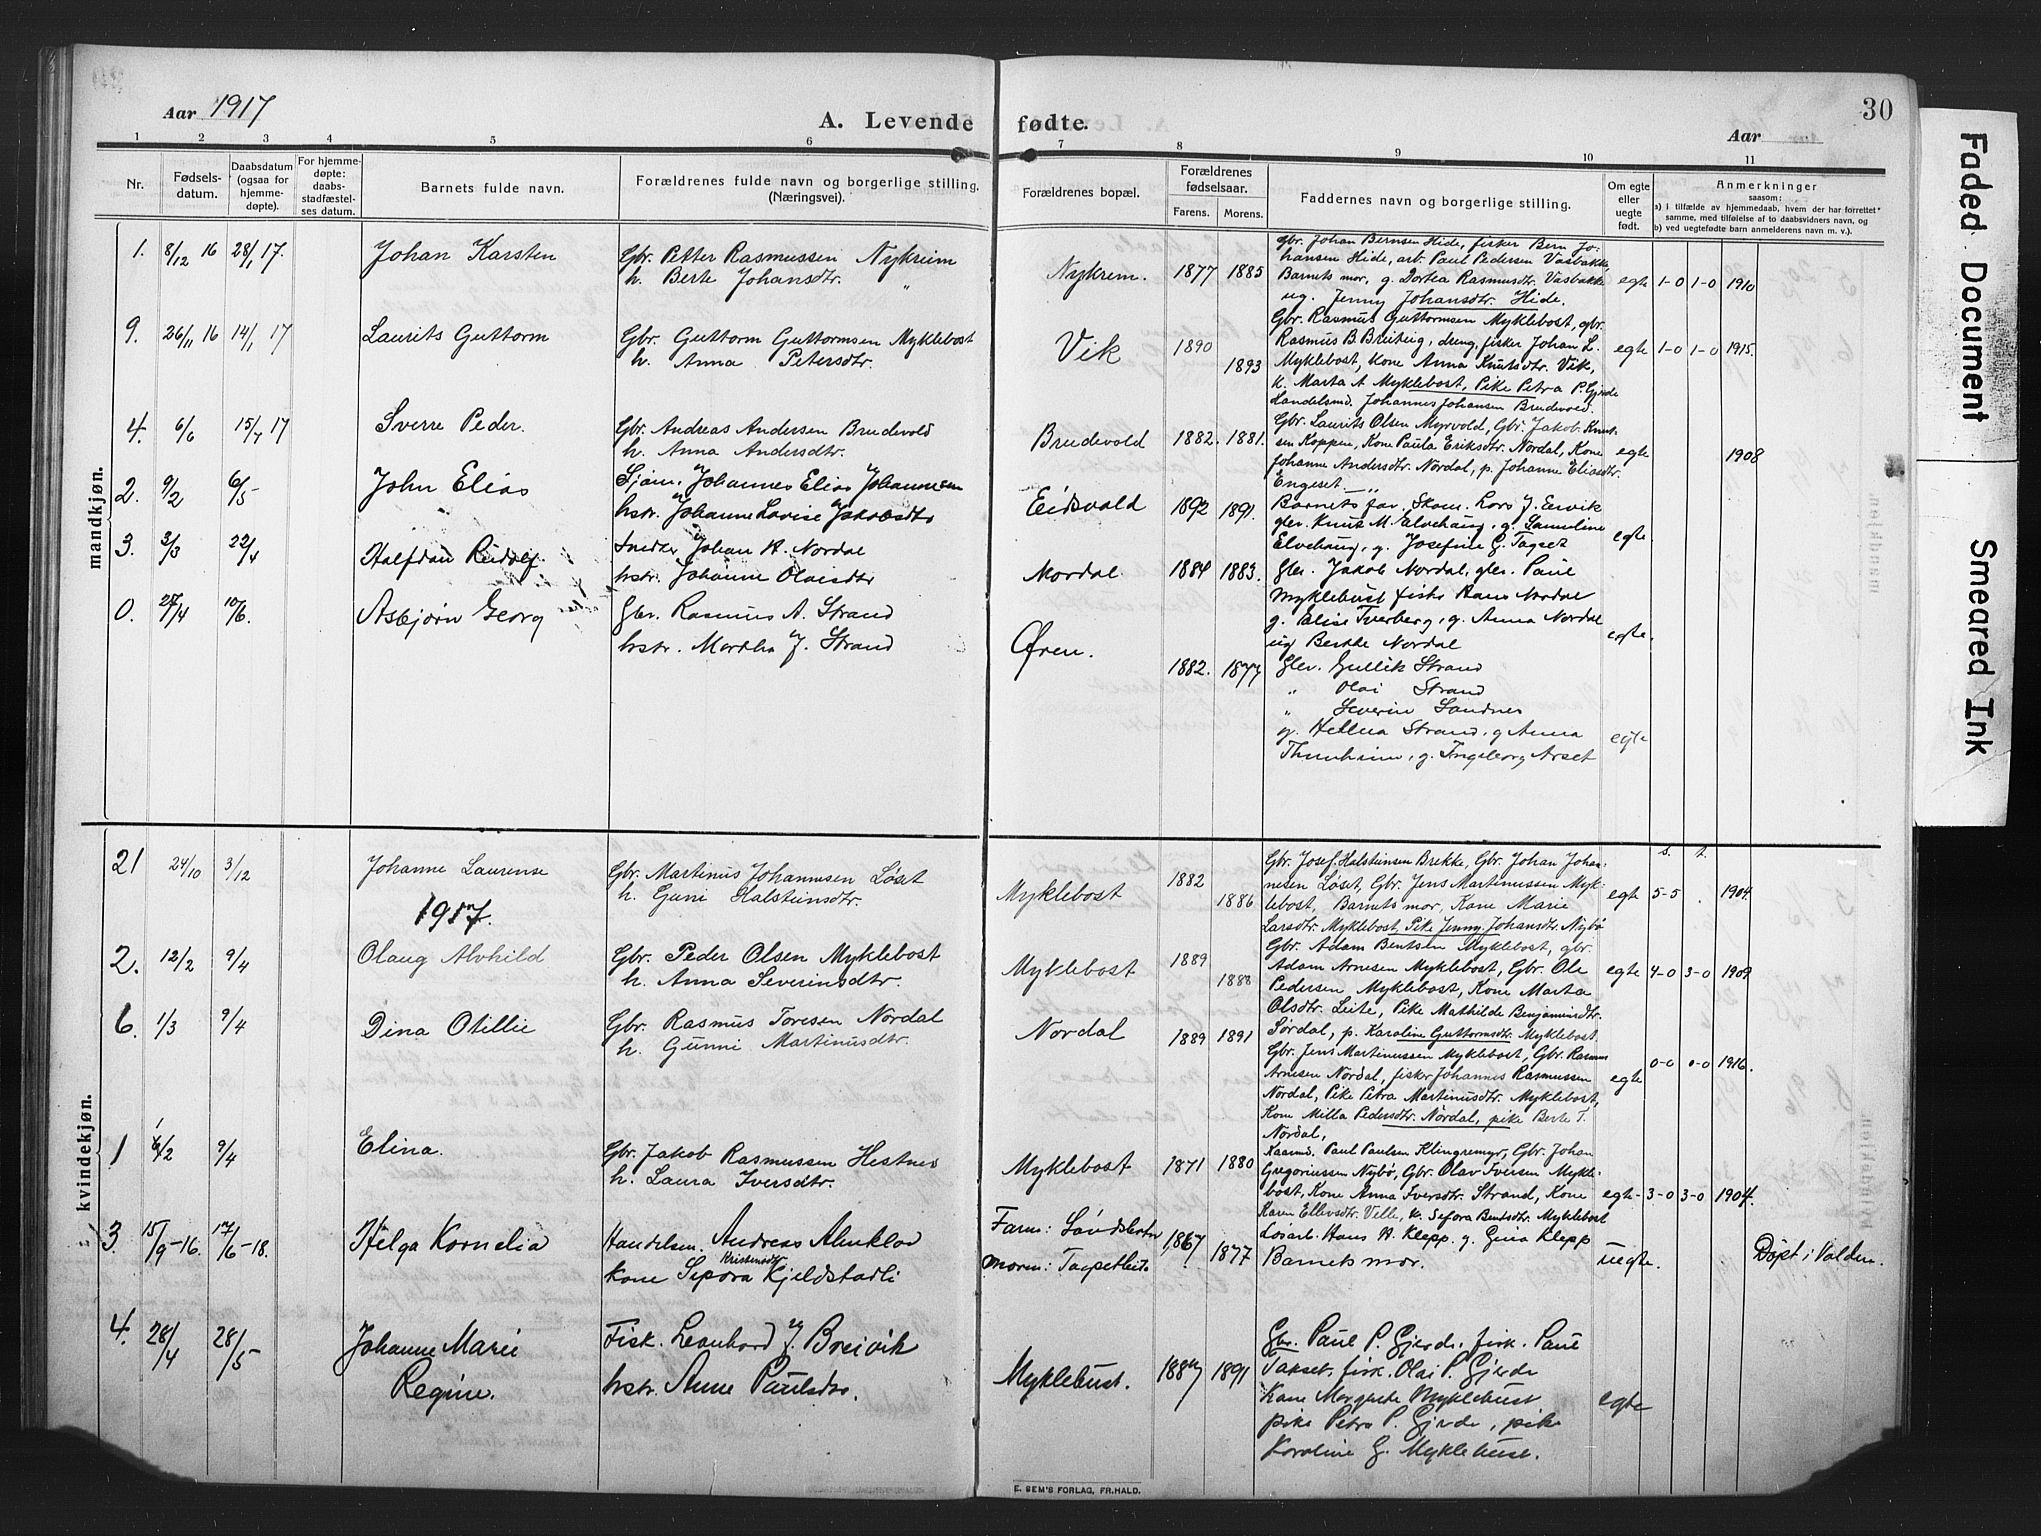 Aar 1917
A. Levende fødte.
Aar
30
1 2 3 4 5 6 7 8 9 10 11
Nr.
Fødsels-
datum.
Daabsdatum
(ogsaa for
hjemme-
døpte).
For hjemme-
døpte:
daabs-
stadfæstel-
ses datum.
Barnets fulde navn.
Forældrenes fulde navn og borgerlige stilling.
(Næringsvei).
Forældrenes bopæl.
Forældrenes
fødselsaar.
Farens. Morens.
Faddernes navn og borgerlige stilling.
Om egte
eller
uegte
født.
Anmerkninger
saasom:
a) i tilfælde av hjemmedaab, hvem der har forrettet
samme, med tilføielse af to daabsvidners navn, og
b) ved uegtefødte barn anmelderens navn m. v.).
mandkjøn.
1. 8/12 16 28/1 17. Johan Karsten
Gbr. Petter Rasmussen Nykreim
h. Berte Johansdtr. "
Nykrem. 1877 1885
Gbr. Johan Bernsen Hide, fisker Bern Jo-
hansen Hide, arb. Paul Pedersen Vasbakke,
Barnets mor, g. Dortea Rasmusdtr. Vasbakke
ug. Jenny Johansdtr. Hide.
egte 1-0 1-0 1910
9. 26/11 16 14/1 17 Laurits Guttorm
Gbr. Guttorm Guttormsen Myklebost
h. Anna Petersdtr.
Vik 1890 1893
Gbr. Rasmus Guttormsen Myklebost, gbr.
Rasmus B. Breiteig, dreng, fisker Johan L.
Myklebost, Kone Anna Knutsdtr. Vik,
k. Marta A Myklebost, Pike Petra P. Gjerde
Handelsmd. Johannes Johansen Brudevold.
egte 1-0 1-0 1915.
4. 6/6 15/7 17 Sverre Peder.
Gbr. Andreas Andersen Brudevold
h. Anna Andersdtr.
Brudevold 1882. 1881.
Gbr. Laurits Olsen Myrvold, Gbr. Jakob Knut-
sen Koppen, Kone Paula Eriksdtr. Nordal, Kone
Johanne Andersdtr. Nordal, p. Johanne Eliasdtr.
Engeset
egte 1908
2. 9/2 6/5 John Elias
Sjøm. Johannes Elias Johannesen
hstr. Johanne Lovise Jakobsdtr
Eidsvald 1892 1891.
Barnets far. Skom. Lars J. Ervik
gbr. Knut M. Elvehaug, g. Samuline
Elvehaug, g. Josefine G. Tagset
egte.
3. 3/3 22/4 Halfdan Rudolf.
Snedker Johan A. Nordal
hstr. Johanne Olaisdtr
Nordal. 1884 1883.
Gbr. Jakob Nordal, gbr. Paul
Myklebust fisker Hans Nordal
g. Elise Tverberg, g. Anna Nordal
ug Berthe Nordal
egte.
0. 27/4 10/6. Asbjørn Georg
Gbr. Rasmus A. Strand
hstr. Martha J. Strand
Øren. 1882. 1877
Gbr. Gullik Strand
" Olai Strand
" Severin Sandnes
g. Hellna Strand, g Anna
g. Ingeborg Arset
egte
kvindekjøn.
21 24/10 3/12 Johanne Laurense
Gbr. Martinus Johannesen Løset
h. Guni Halsteinsdtr.
Myklebost 1882 1886
Gbr. Josef Halsteinsen Brekke, Gbr. Johan Johan-
nesen Løset, Gbr. Jens Martinussen Myk-
lebost, Barnets mor, Kone Marie
Larsdtr. Myklebost, Pike Jenny Johansdtr. Nybø
egte s. 5-5 t. 1904.
1917.
2. 12/2 9/4 Olaug Alvhild
Gbr. Peder Olsen Myklebost
h. Anna Severinsdtr.
Myklebost 1889 1888
Gbr. Adam Bentsen Myklebost, gbr.
Adam Arnesen Myklebost, Gbr. Ole
Pedersen Myklebost, Kone Marta
Olsdtr. Leite, Pike Mathilde Benjamindtr.
Sørdal, p. Karoline Guttormsdtr. Myklebost.
egte 4-0 3-0 1909
6. 1/3 9/4 Dina Otillie
Gbr. Rasmus Toresen Nordal
h. Gunni Martinusdtr.
Nordal 1889 1891
Gbr. Jens Martinussen Myklebost, Gbr. Rasmus
Arnesen Nordal, fisker Johannes Rasmussen
Nordal, Pike Petra Martinusdtr. Myklebost,
Kone Milla Pedersdtr. Nordal, pike Berte T.
Nordal,
egte 0-0 0-0 1916.
1 6/2 9/4 Elina.
Gbr. Jakob Rasmussen Hestnes
h. Laura Iversdtr.
Myklebost 1871 1880
Kaarmd. Paul Paulsen Klingremyr, Gbr. Johan
Gregoriussen Nybø, Gbr. Olav Iversen Mykle-
bost, Kone Anna Iversdtr. Strand, Kone
Karen Ellevsdtr. Velle, k. Sefora Bentsdtr. Myklebost
egte 3-0 3-0 1904.
3. 15/9-16. 17/6-18. Helga Kornelia
Handelsm. Andreas Almklov
Kone Sepora Kristensdtr Kjeldstadli
Faren:
Moren: 1867 1877
Løsarb. Hans H. Klepp. g. Gina Klepp
Barnets mor.
uegte. Døpt i Valden.
4. 28/4 28/5 Johanne Marie
Regine.
Fisk. Leonhard J. Breivik
hstr. Anne Paulsdtr.
Myklebust. 1887 1891
Gbr. Paul P. Gjerde, fisk. Paul
Takset. fisk. Olai P. Gjerde
Kone Margrete Myklebust
pike Petra P. Gjerde, pike
Karoline G. Myklebust.
egte
E. SEM'S FORLAG, FR.HALD.
Faded Document
Smeared Ink